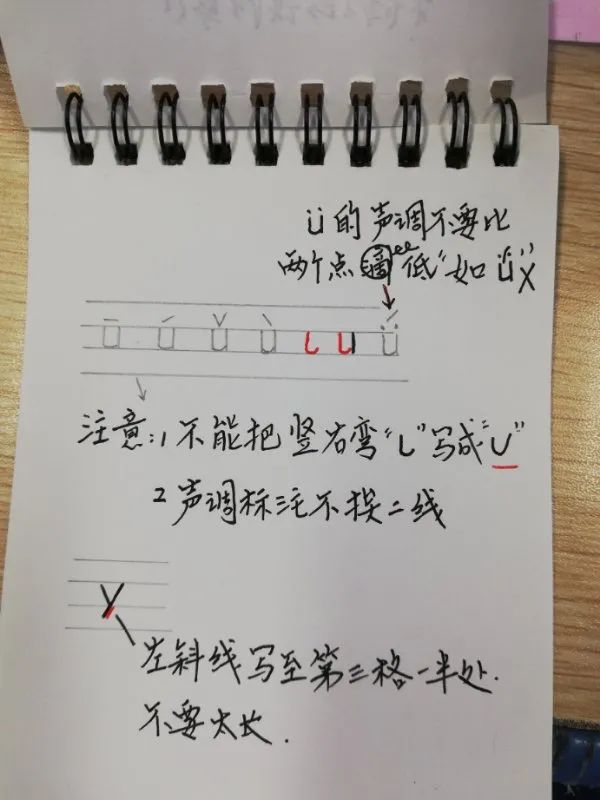 ü的声调不要比
两个点"低"如ǘ×
ū ú ǔ ù ㇄ u ǘ
注意:1 不能把竖右弯"㇄"写成"U"
2 声调标注不挨二线
y
左斜线写至第三格一半处.
不要太长.